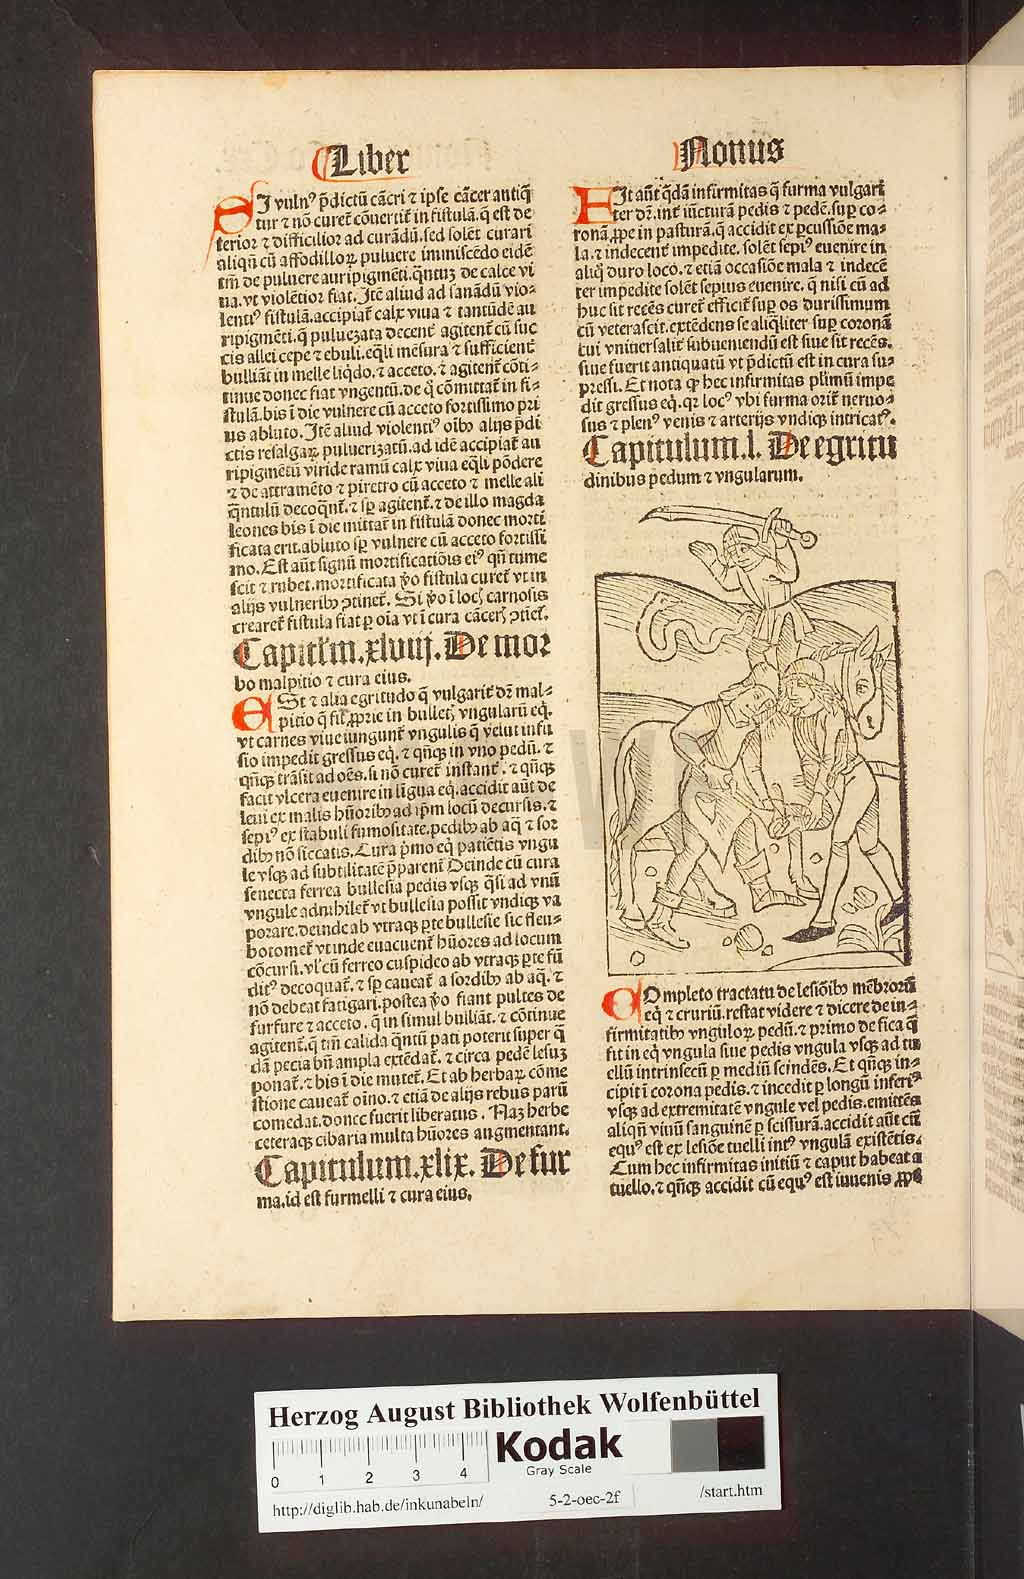 Liber
Nonus
SI vulnꝰ p̄dictū cācri ⁊ ipse cācer antiq̄
tur ⁊ nō curet᷑ cōuertit᷑ in fistulā. q̄ est de
terior ⁊ difficilior ad curādū. sed solēt curari
aliqn̄ cū affodilloꝝ puluere immiscēdo eidē
tm̄ de puluere auripigmēti. q̄ntuꝫ de calce vi
ua. vt violētior fiat. Itē aliud ad sanādū vio⸗
lentiꝰ fistulā. accipiat᷑ calx viua ⁊ tantūdē au
ripigmēti. q̄ puluezata decent᷑ agitent᷑ cū suc
cis allei cepe ⁊ ebuli. eq̄li mēsura ⁊ sufficient᷑
bulliāt in melle liq̄do. ⁊ acceto. ⁊ agitent᷑ cōti⸗
tinue donec fiat vngentū. de q̄ cōmittat᷑ in fi⸗
stulā. bis ī die vulnere cū acceto fortissimo pri
us abluto. Itē aliud violentiꝰ oībꝰ alijs p̄di
ctis resalgaꝝ puluerizatū. ad idē accipiat᷑ au
ripigmētū viride ramū calx viua eq̄li pōdere
⁊ de attramēto ⁊ piretro cū acceto ⁊ melle ali
q̄ntulū decoqn̄t᷑. ⁊ sꝑ agitent᷑. ⁊ de illo magda
leones bis ī die mittat᷑ in fistulā donec morti
ficata erit. abluto sꝑ vulnere cū acceto fortissi
mo. Est aūt signū mortificatiōis eiꝰ qn̄ tume
scit ⁊ rubet. mortificata v̊o fistula curet᷑ vt in
alijs vulneribꝰ ꝯtinet᷑. Si v̊o ī locꝭ carnosis
crearet᷑ fistula fiat ꝑ oīa vt ī cura cācerꝭ ꝯtiet᷑.
Capitl'm. xlviij. De mor
bo malpitio ⁊ cura eius.
ESt ⁊ alia egritudo q̄ vulgarit᷑ dr̄ mal⸗
pitio q̄ fit ꝓprie in bulletꝭ vngularū eq̄.
vt carnes viue iungunt᷑ vngulis q̄ velut infu
sio impedit gressus eq̄. ⁊ qn̄qꝫ in vno pedū. ⁊
qn̄qꝫ trāsit ad oēs. si nō curet᷑ instant᷑. ⁊ qn̄qꝫ
facit vlcera euenire in lingua eq̄. accidit aūt de
leui ex malis hūoribꝰ ad ip̄m locū decursis. ⁊
sepiꝰ ex stabuli fumositate. pedibꝰ ab aq̄ ⁊ sor
dibꝰ nō siccatis. Cura p̄mo eq̄ patiētis vngu
le vsqꝫ ad subtilitatē p̄parent᷑ Deinde cū cura
senecta ferrea bullesia pedis vsqꝫ q̄si ad vnū
vngule adnihilet᷑ vt bullesia possit vndiqꝫ va
porare. deinde ab vtraqꝫ ꝑte bullesie sic fleu⸗
botomet᷑ vt inde euacuent᷑ hūores ad locum
cōcursi. vl' cū ferreo cuspideo ab vtraqꝫ ꝑte fū
ditꝰ decoquat᷑. ⁊ sꝑ caueat᷑ a sordibꝰ ab aq̄. ⁊
nō debeat fatigari. postea v̊o fiant pultes de
furfure ⁊ acceto. q̄ in simul bulliāt. ⁊ cōtinue
agitent᷑. q̄ tm̄ calida q̄ntū pati poterit super q̄
dā pecia bn̄ ampla extēdat᷑. ⁊ circa pedē lesuꝫ
ponat᷑. ⁊ bis ī die mutet᷑. Et ab herbaꝝ cōme
stione caueat᷑ oīno. ⁊ etiā de alijs rebus parū
comedat. donec fuerit liberatus. Naꝫ herbe
ceteraqꝫ cibaria multa hūores augmentant.
Capitulum. xlix. De fur
ma. id est furmelli ⁊ cura eius.
FIt aūt q̄dā infirmitas q̄ furma vulgari
ter dr̄. int᷑ iūcturā pedis ⁊ pedē. suꝑ co⸗
ronā. ꝓpe in pasturā. q̄ accidit ex ꝑcussiōe ma⸗
la. ⁊ indecent᷑ impedite. solēt sepiꝰ euenire in
aliq̄ duro loco. ⁊ etiā occasiōe mala ⁊ indecē
ter impedite solēt sepius euenire. q̄ nisi cū ad
huc sit recēs curet᷑ efficit᷑ suꝑ os durissimum
cū veterascit. extēdens se aliq̄liter suꝑ coronā
cui vniuersalit᷑ subueniendū est siue sit recēs.
siue fuerit antiquatū vt p̄dictū est in cura su⸗
pressi. Et nota ꝙ hec infirmitas pl'imū impe
dit gressus eq̄. qꝛ locꝰ vbi furma orit᷑ neruo⸗
sus ⁊ plenꝰ venis ⁊ arterijs vndiqꝫ intricatꝰ.
Capitulum. l. De egritu
dinibus pedum ⁊ vngularum.
COmpleto tractatu de lesiōibꝰ mēbroꝝ
eq̄ ⁊ cruriū. restat videre ⁊ dicere de in⸗
firmitatibꝰ vnguloꝝ pedū. ⁊ primo de fica q̄
fit in eq̄ vngula siue pedis vngula vsqꝫ ad tu
ellū intrinsecū ꝑ mediū scindēs. Et qn̄qꝫ in⸗
cipit ī corona pedis. ⁊ incedit ꝑ longū inferiꝰ
vsqꝫ ad extremitatē vngule vel pedis. emittēs
aliqn̄ viuū sanguinē ꝑ scissurā. accidit aūt cū
equꝰ est ex lesiōe tuelli intꝰ vngulā existētis.
Cum hec infirmitas initiū ⁊ caput habeat a
tuello. ⁊ qn̄qꝫ accidit cū equꝰ est iuuenis
Herzog August Bibliothek Wolfenbüttel
0 1 2 3 4
Kodak
Gray Scale
http://diglib.hab.de/inkunabeln/ 5-2-oec-2f /start.htm